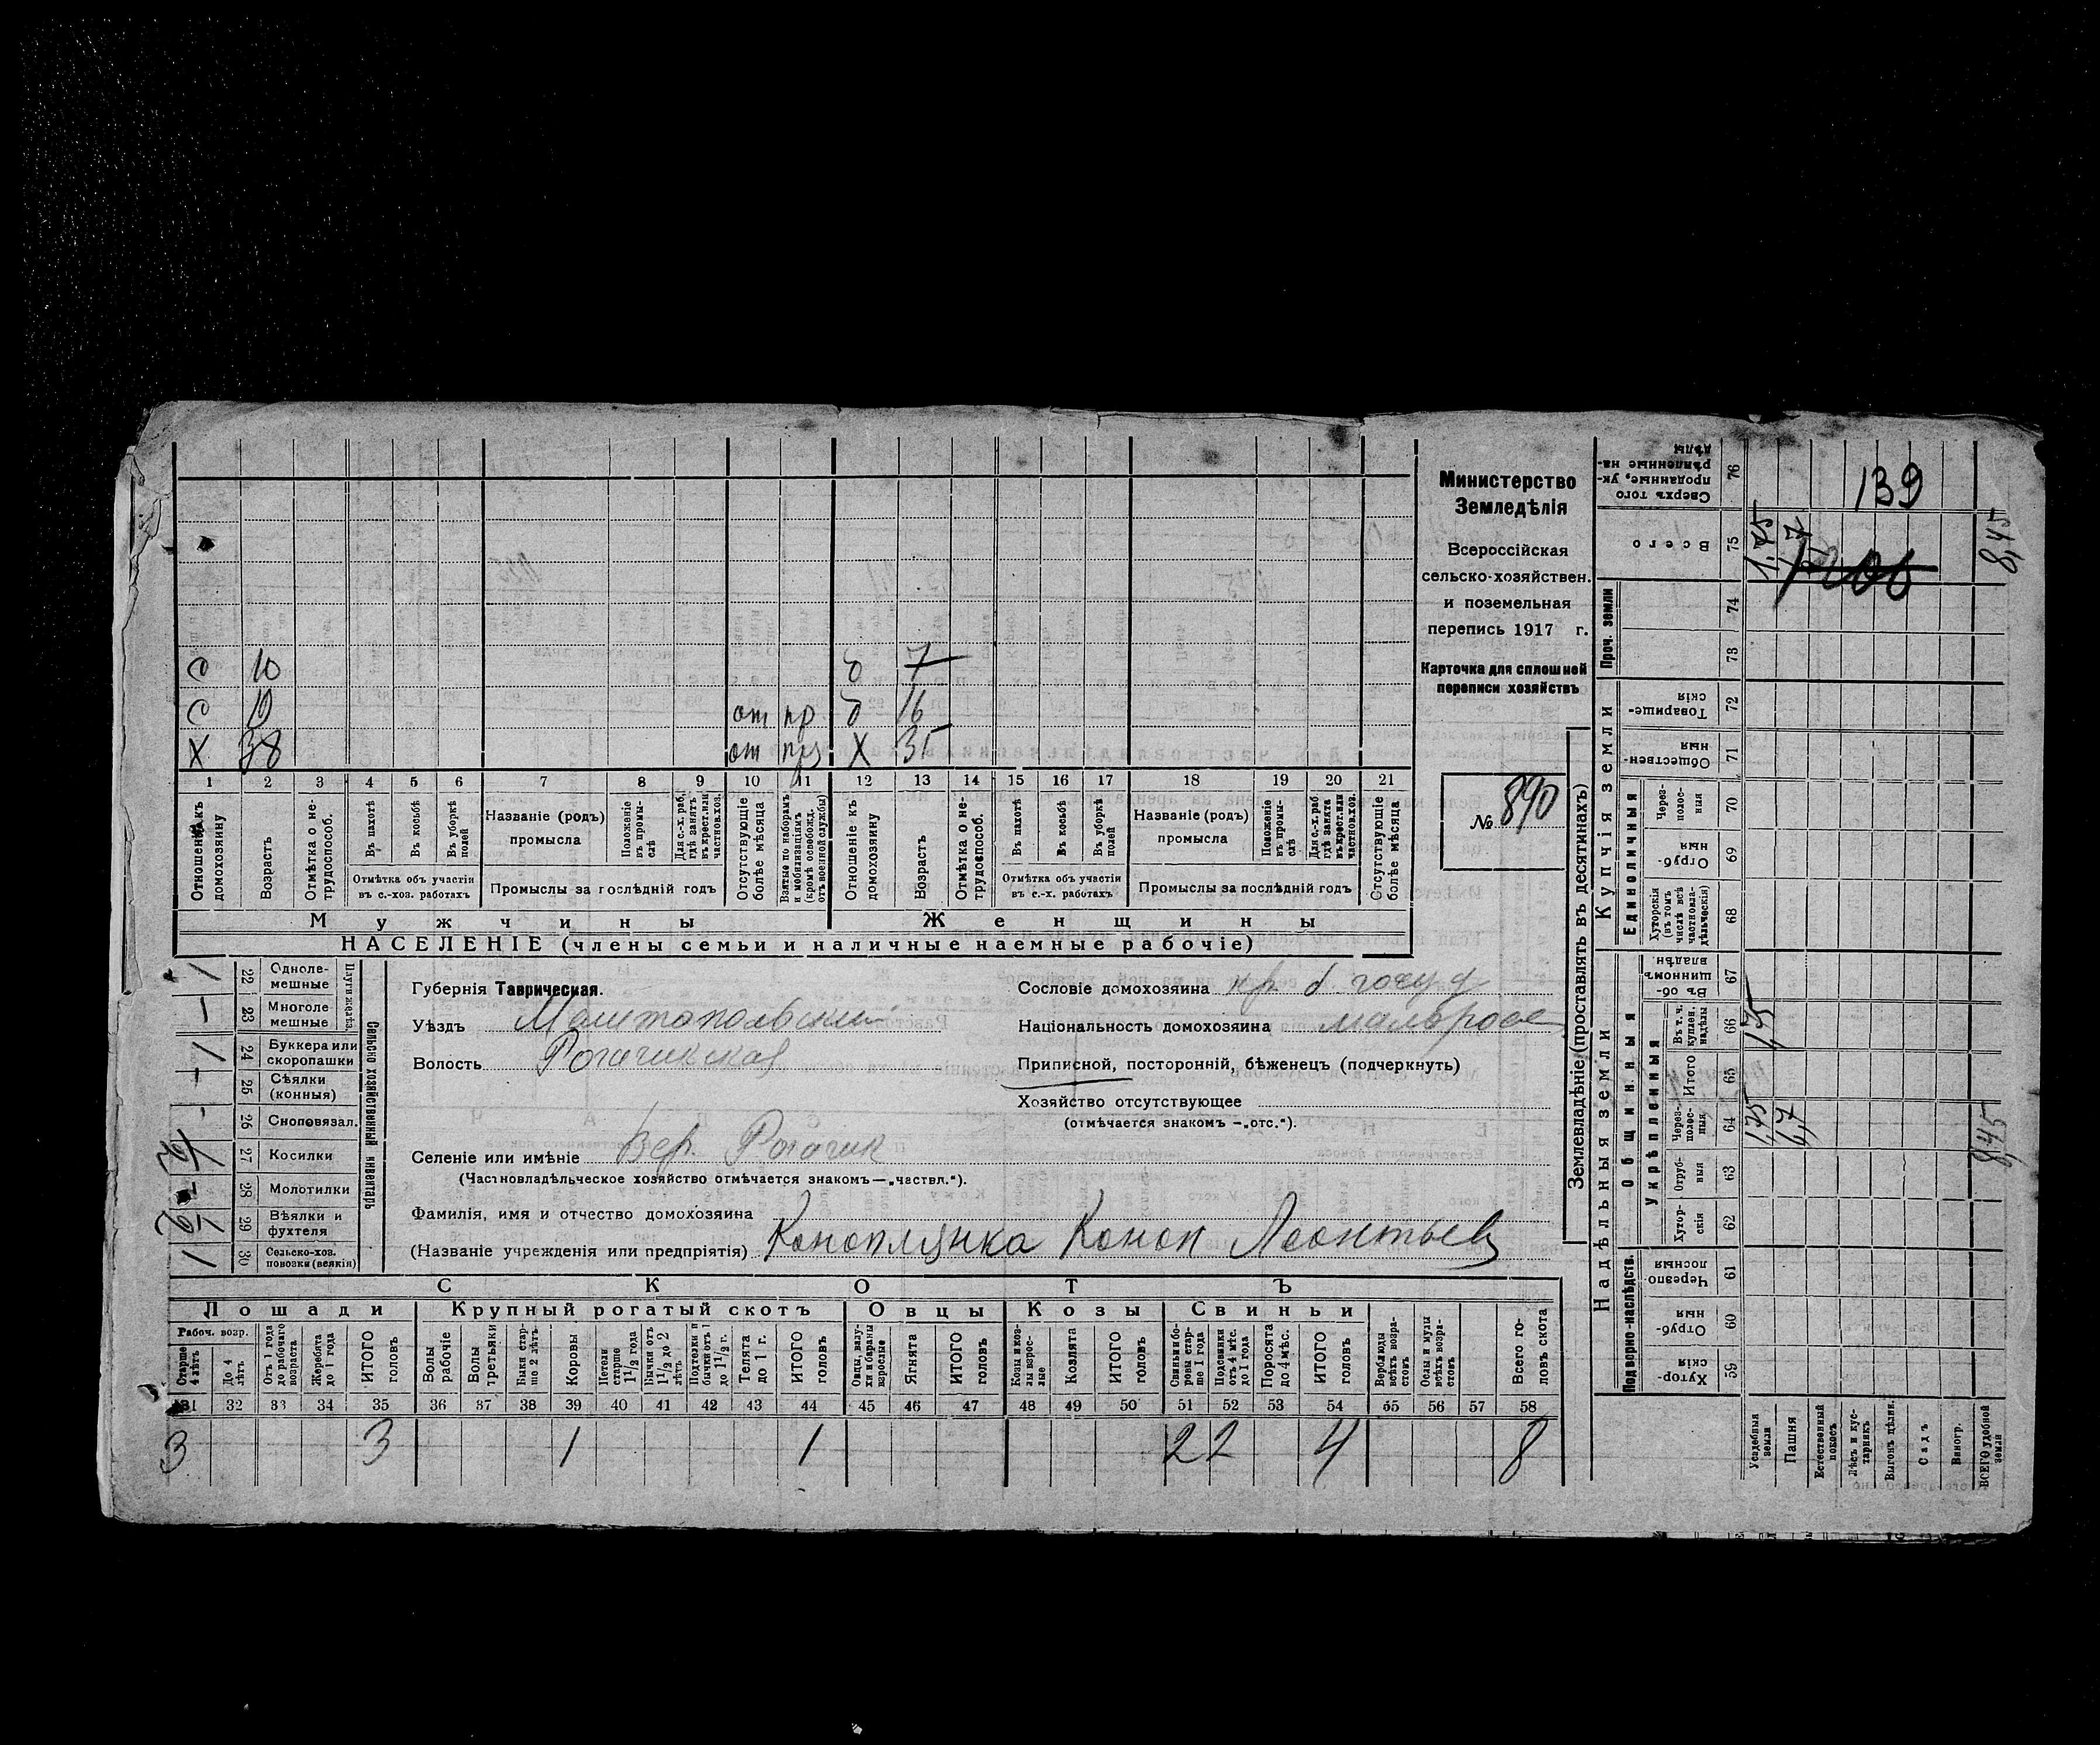 Министерство
Земледѣлія
Всероссійская
сельско-хозяйствен.
и поземельная
перепись 1917 г.
Карточка для сплошней
переписи хозяйствъ
№ 890
о 10 б 7
с от пр б 16
Х 38 от Х 35
1 2 3 4 5 6 7 8 9 10 11 12 13 14 15 16 17 18 19 20 21
Отношеніе къ домохозяину
Возрастъ
Отмѣтка о нетрудоспособ.
Въ пахотѣ
Въ косьбѣ
Въ уборкѣ полей
Отмѣтка объ участіи въ с.-хоз. работахъ
Названіе (родъ) промысла
Положеніе въ промыслѣ
Для с.-х. раб. гдѣ занятъ въ крест. или частнов. хоз.
Промыслы за послѣдній годъ
Отсутствующіе болѣе мѣсяца
Взятые по наборамъ и мобилизаціямъ (кромѣ освобожд. отъ военной службы)
Отношеніе къ домохозяину
Возрастъ
Отмѣтка о нетрудоспособ.
Въ пахотѣ
Въ косьбѣ
Въ уборкѣ полей
Отмѣтка объ участіи въ с.-х. работахъ
Названіе (родъ) промысла
Положеніе въ промыслѣ
Для с.-х. раб. гдѣ занята въ крест. или частнов. хоз.
Промыслы за послѣдній годъ
Отсутствующіе болѣе мѣсяца
Мужчины Женщины
НАСЕЛЕНІЕ (члены семьи и наличные наемные рабочіе)
Сельско хозяйственный инвентарь
Плуги желѣз.
22 Однолемешные 1
23 Многолемешные —
24 Буккера или скоропашки 1
25 Сѣялки (конныя) —
26 Сноповязал. -
27 Косилки
28 Молотилки —
29 Вѣялки и фухтеля
30 Сельско-хоз. повозки (всякія) 1
Губернія Таврическая.
Уѣздъ Мелитопольскій
Волость Рогачикская
Селеніе или имѣніе Вер. Рогачик
(Частновладѣльческое хозяйство отмѣчается знакомъ—„частвл.“).
Фамилія, имя и отчество домохозяина
(Названіе учрежденія или предпріятія) Коноплянка Конон Леонтьев
Сословіе домохозяина кр. б. госуд
Національность домохозяина малоросс
Приписной, посторонній, бѣженец (подчеркнуть)
Хозяйство отсутствующее
(отмѣчается знакомъ —„отс.“).
СКОТЪ
Лошади Крупный рогатый скотъ Овцы Козы Свиньи
Рабоч. возр.
Старше 4 лѣтъ
До 4 лѣтъ
Отъ 1 года до рабочаго возраста
Жеребята до 1 года
ИТОГО головъ
Волы рабочіе
Волы третьяки
Быки старше 2 лѣтъ
Коровы
Нетели старше 1 1/2 года
Бычки отъ 1 1/2 до 2 лѣтъ
Подтелки и бычки отъ 1 до 1 1/2 г.
Телята до 1 г.
ИТОГО головъ
Овцы, валухи и бараны взрослые
Ягнята
ИТОГО головъ
Козы и козлы взрослые
Козлята
ИТОГО головъ
Свиньи боровы старше 1 года
Подсвинки отъ 4 мѣс. до 1 года
Поросята до 4 мѣс.
ИТОГО головъ
Верблюды всѣхъ возрастовъ
Ослы и мулы всѣхъ возрастовъ
Всего головъ скота
31 32 33 34 35 36 37 38 39 40 41 42 43 44 45 46 47 48 49 50 51 52 53 54 55 56 57 58
3 3 1 1 2 2 4 8
Землевладѣніе (проставлять въ десятинахъ)
Сверхъ того проданные, укрѣпленные надѣлы 76 139
Всего 75 1,75 8,45
Проч. земли 74
73
Купчія земли
Товарищескія 72
Общественныя 71
Единоличныя
Черезполосныя 70
Отрубныя 69
Хуторскія (въ томъ числѣ всѣ частновладѣльческія) 68
Надѣльныя земли
Общинныя
Въ общинномъ владѣн. 67
Укрѣпленныя
Въ т. ч. куплен. надѣлы 66 1,75
Итого 65
Черезполосныя 64 1,75 6,7 8,45
Отрубныя 63
Хуторскія 62
Подворно-наслѣдств.
Черезполосныя 61
Отрубныя 60
Хуторскія 59
Усадебныя земли
Пашня
Естественный покосъ
Лѣсъ и кустарникъ
Выгонъ цѣлин.
Садъ
Виногр.
ВСЕГО удобной земли